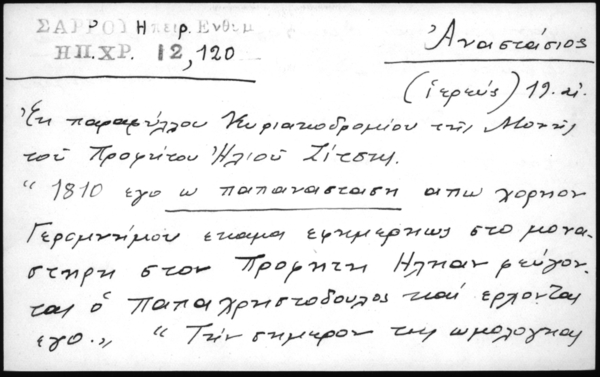 ΣΑΡΡΟΥ Ηπειρ. Ενθυμ
ΗΠ.ΧΡ. 12, 120
Ἀναστάσιος
(ἱερεύς) 19. αἰ.
Ἐκ παραφύλλου Κυριακοδρομίου τῆς Μονῆς
τοῦ Προφήτου Ἠλιοῦ Ζίτσης.
“ 1810 εγο ω παπαναστασης απω χοριον
Γερομνήμου εκαμα εφημερηως στο μονα-
στηρη στον Προφητη Ηληαν φεύγον-
τας ὁ παπαχρηστοδουλος καί ερχοντας
εγο.„ “ Τήν σημερον της ωμολογηας